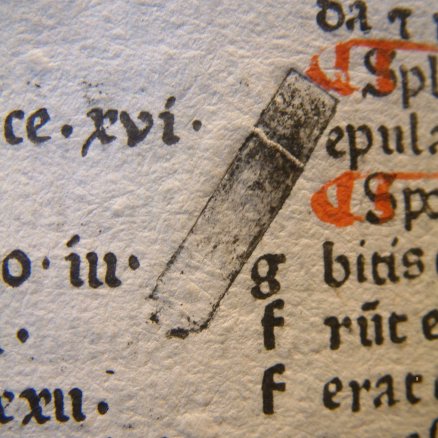 da τ
¶ Spl
ce. xvi. epula
¶ Spo
o. iii. g bitis
. f rūt e
xxii. f erat